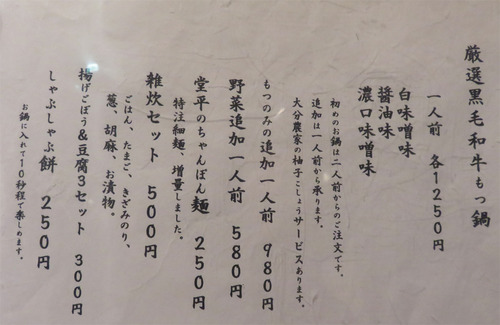 厳選黒毛和牛もつ鍋
一人前 各1250円
白味噌味
醤油味
濃口味噌味
初めのお鍋は二人前からのご注文です。
追加は一人前から承ります。
大分農家の柚子こしょうサービスあります。
もつのみの追加一人前 980円
野菜追加一人前 580円
堂平のちゃんぽん麺 250円
特注細麺、増量しました。
雑炊セット 500円
ごはん、たまご、きざみのり、
葱、胡麻、お漬物。
揚げごぼう&豆腐3セット 300円
しゃぶしゃぶ餅 250円
お鍋に入れて10秒程で楽しめます。